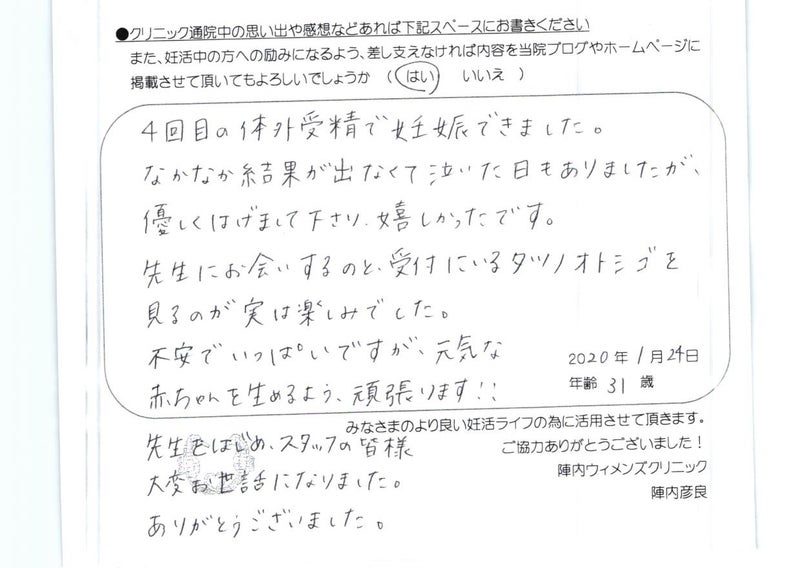 ●クリニック通院中の思い出や感想などあれば下記スペースにお書きください
また、妊活中の方への励みになるよう、差し支えなければ内容を当院ブログやホームページに
掲載させて頂いてもよろしいでしょうか （ はい　いいえ ）
4回目の体外受精で妊娠できました。
なかなか結果が出なくて泣いた日もありましたが、
優しくはげまして下さり、嬉しかったです。
先生にお会いするのと、受付にいるタツノオトシゴを
見るのが実は楽しみでした。
不安でいっぱいですが、元気な
赤ちゃんを生めるよう、頑張ります!!
2020年 1月24日
年齢 31 歳
みなさまのより良い妊活ライフの為に活用させて頂きます。
ご協力ありがとうございました！
陣内ウィメンズクリニック
陣内彦良
先生をはじめ、スタッフの皆様
大変お世話になりました。
ありがとうございました。